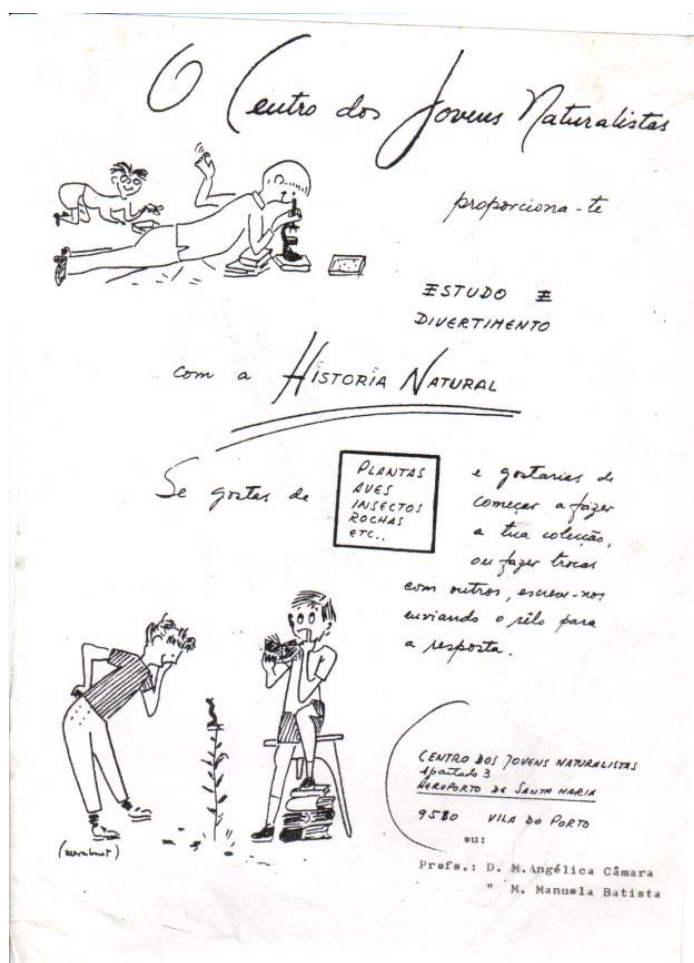 O Centro dos Jovens Naturalistas
proporciona-te
ESTUDO E
DIVERTIMENTO
com a HISTORIA NATURAL
Se gostas de
PLANTAS
AVES
INSECTOS
ROCHAS
ETC..
e gostarias de
começar a fazer
a tua coleção,
ou fazer trocas
com outros, escreve-nos
enviando o sêlo para
a resposta.
CENTRO DOS JOVENS NATURALISTAS
Apartado 3
AEROPORTO DE SANTA MARIA
9580 VILA DO PORTO
ou:
Profs.: D. M.Angélica Câmara
" M. Manuela Batista